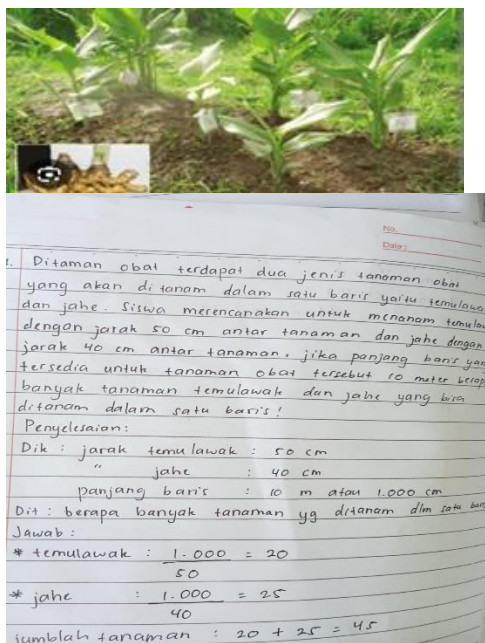 No.
Date:
1. Ditaman obat terdapat dua jenis tanaman obat
yang akan di tanam dalam satu baris yaitu temulawa
dan jahe. Siswa merencanakan untuk menanam temulaw
dengan jarak 50 cm antar tanaman dan jahe dengan
jarak 40 cm antar tanaman. jika panjang baris yan
tersedia untuk tanaman obat tersebut 10 meter berap
banyak tanaman temulawak dan jahe yang bisa
ditanam dalam satu baris!
Penyelesaian:
Dik : jarak temulawak : 50 cm
" jahe : 40 cm
panjang baris : 10 m atau 1.000 cm
Dit : berapa banyak tanaman yg ditanam dlm satu baris
Jawab :
* temulawak : 1.000 = 20
50
* jahe : 1.000 = 25
40
jumblah tanaman : 20 + 25 = 45